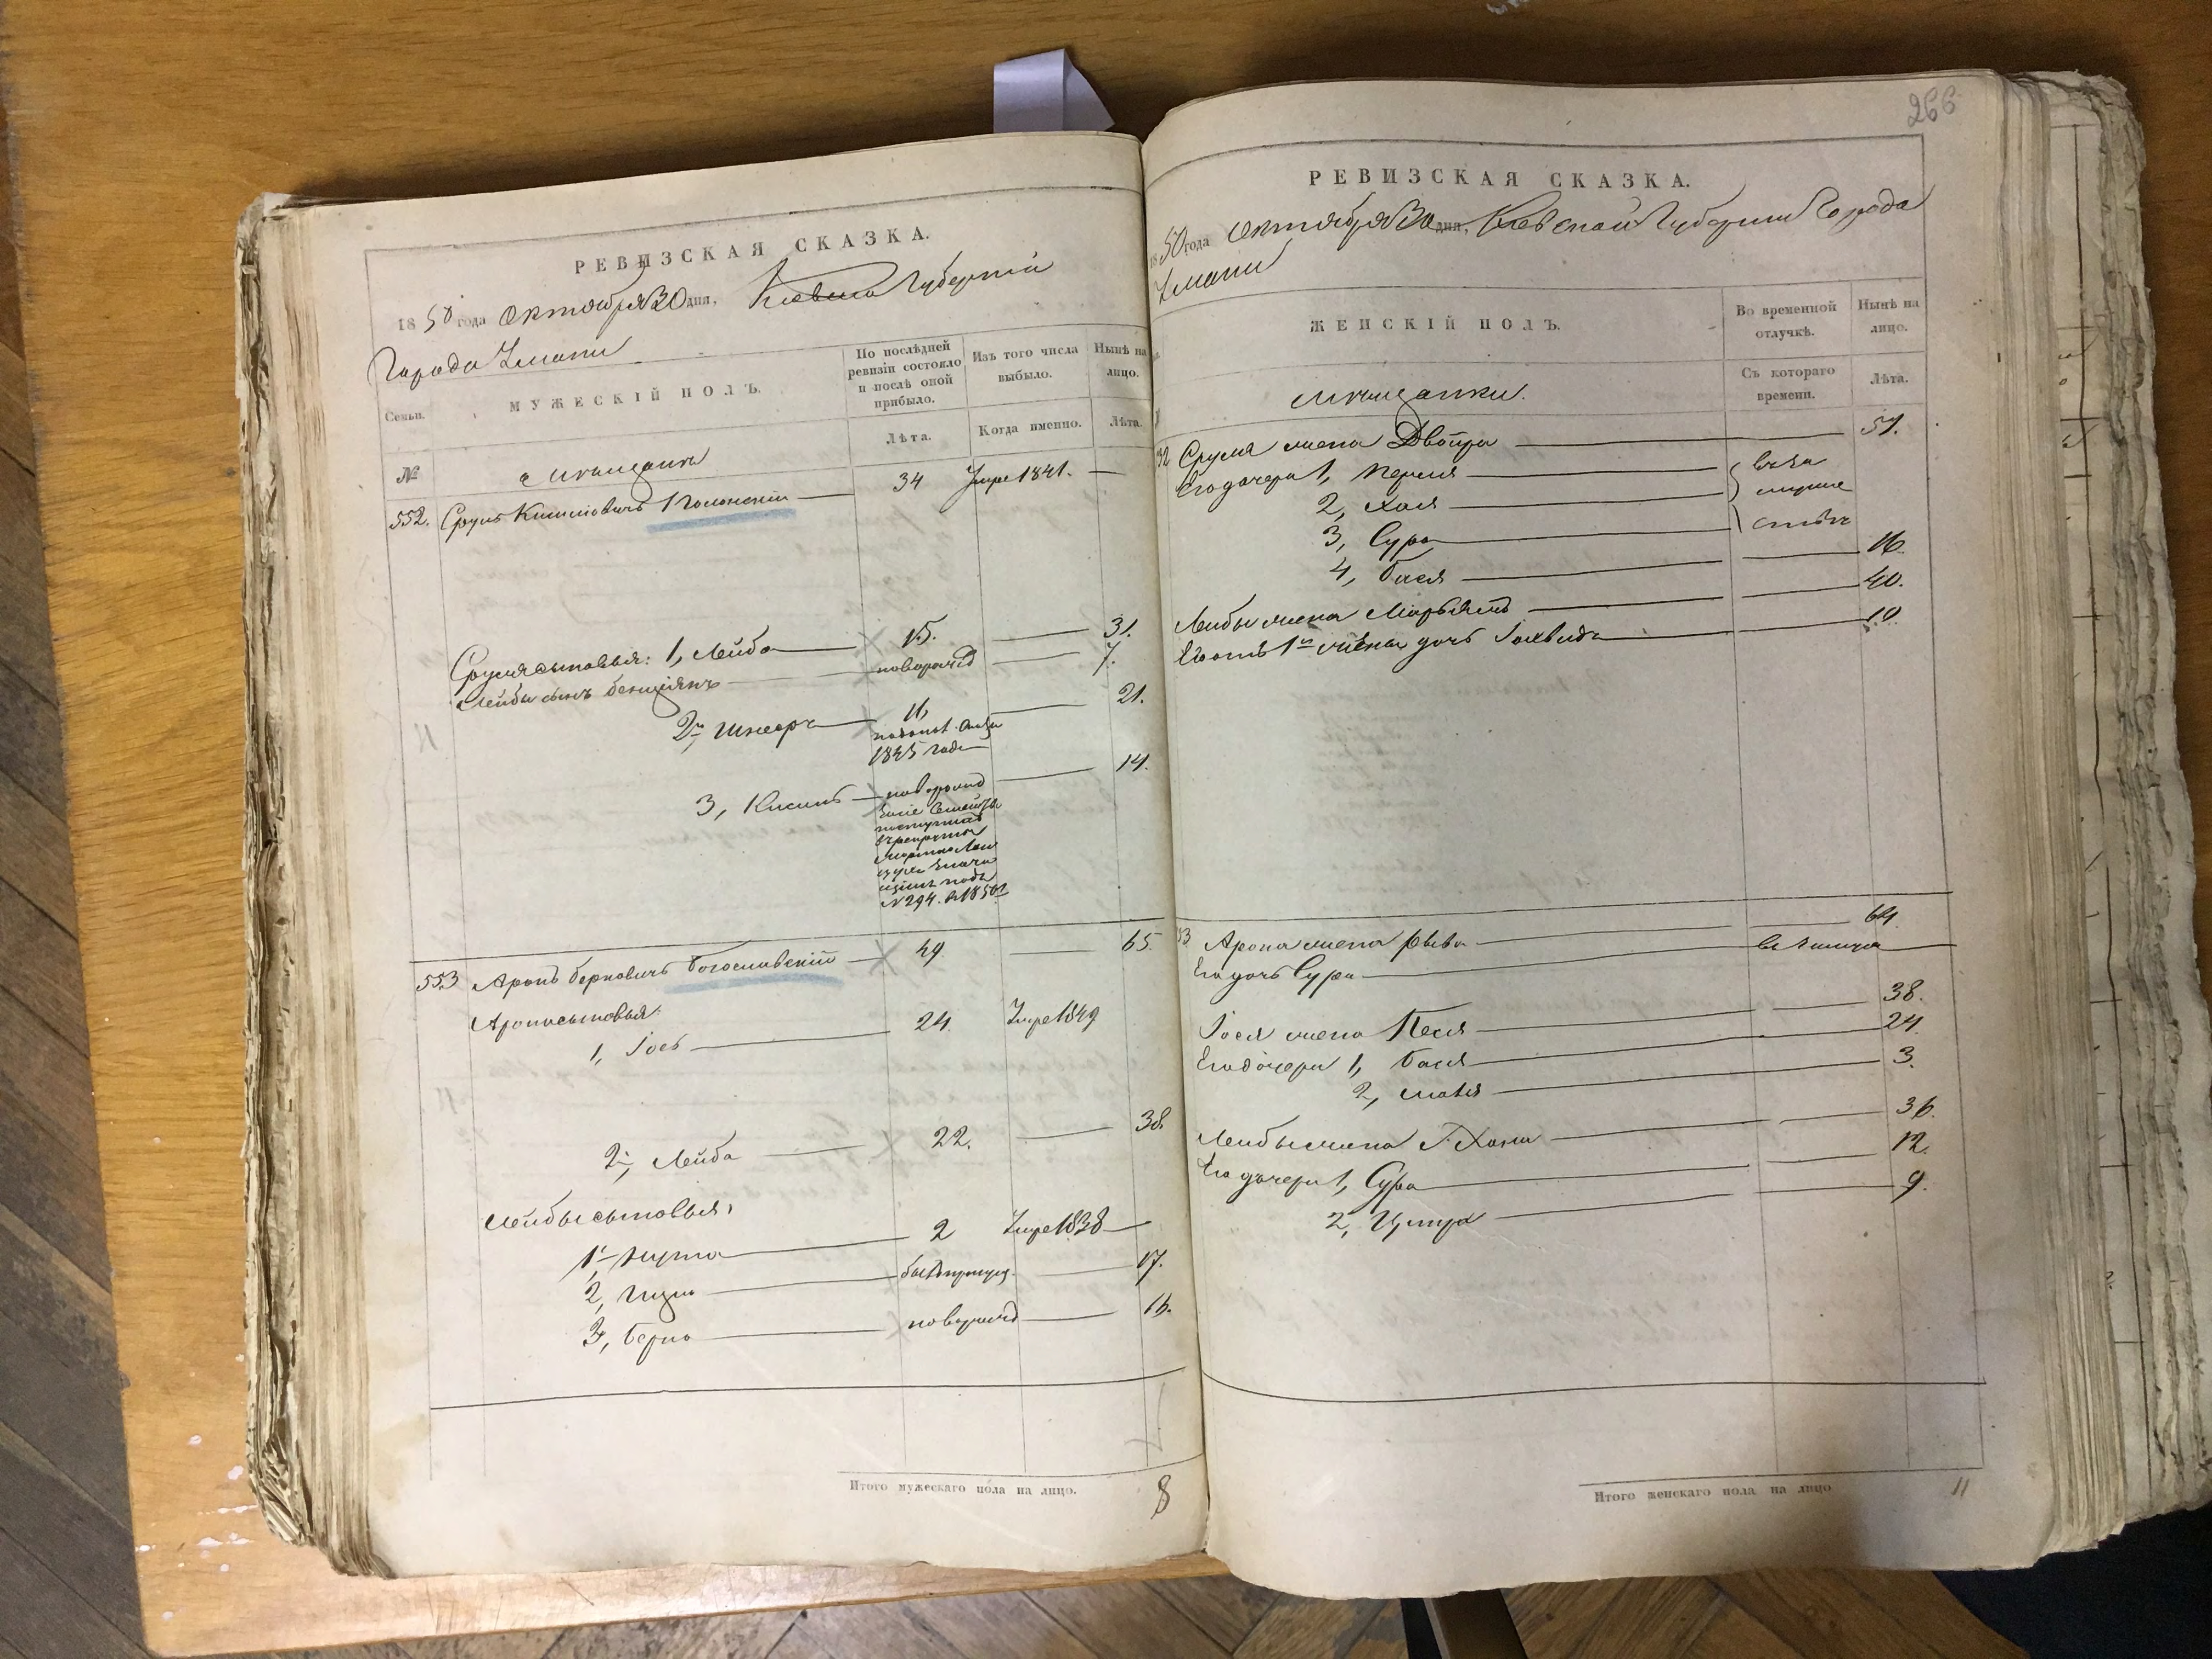 РЕВИЗСКАЯ СКАЗКА.
1850 года октября 30 дня, Киевской Губернии
Города Умани
Семьи.
МУЖЕСКІЙ ПОЛЪ.
По послѣдней ревизіи состояло и послѣ оной прибыло.
Изъ того числа выбыло.
Нынѣ на лицо.
Лѣта.
Когда именно.
Лѣта.
№
мѣщане
552. Сруль Полонскій 34 Умре 1841.
Сруля сыновья: 1, Лейба 15. 31.
Лейбы сынъ Бенціянъ новорожд 7.
2й, Шнеоръ 11, 21.
1845 года
3, новорожд 14.
№ 294.
553 Аронъ Берковичъ Богославскій 49 65.
Арона сыновья:
1, Іось 24. Умре 1849
2й, Лейба 22. 38.
Лейбы сыновья,
1й 2 Умре 1838
2, 17.
3, Берко новорожд 16.
Итого мужескаго пола на лицо. 8
266
РЕВИЗСКАЯ СКАЗКА.
1850 года октября 30 дня, Киевской Губернии Города
Умани
ЖЕНСКІЙ ПОЛЪ.
Во временной отлучкѣ.
Нынѣ на лицо.
Съ котораго времени.
Лѣта.
мѣщанки.
Сруля жена Двойра 51.
Его дочери 1, Перля
2, Хая
3, Сура
4, Бася 16.
Лейбы жена Марьямъ 40.
Его отъ 1й жены дочь 10.
53 Арона жена Рыва 64.
Его дочь Сура
Іося жена Песя 38.
Его дочери 1, Бася 24.
2, 3.
Лейбы жена Хана 36.
Его дочери 1, Сура 12.
2, 9.
Итого женскаго пола на лицо 11